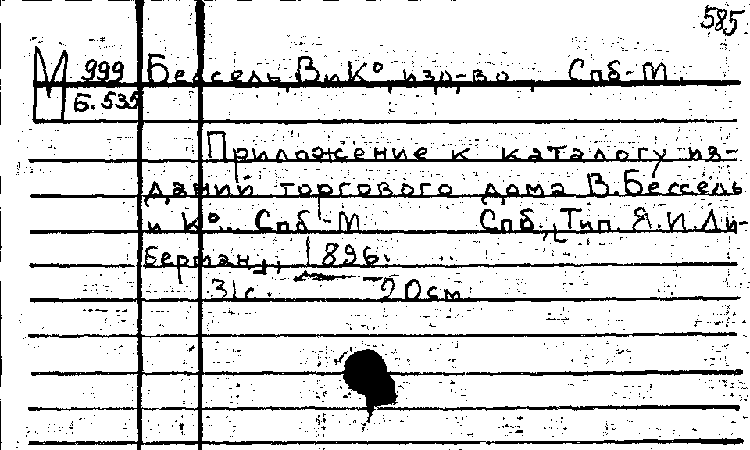 585
М 999 Бессель, В и К°, изд-во, Спб-М.
Б. 535
Приложение к каталогу из-
даний торгового дома В. Бессель
и К°. Спб-М Спб., Тип. Я.И. Ли-
берман, 1896.
31с. 20см.